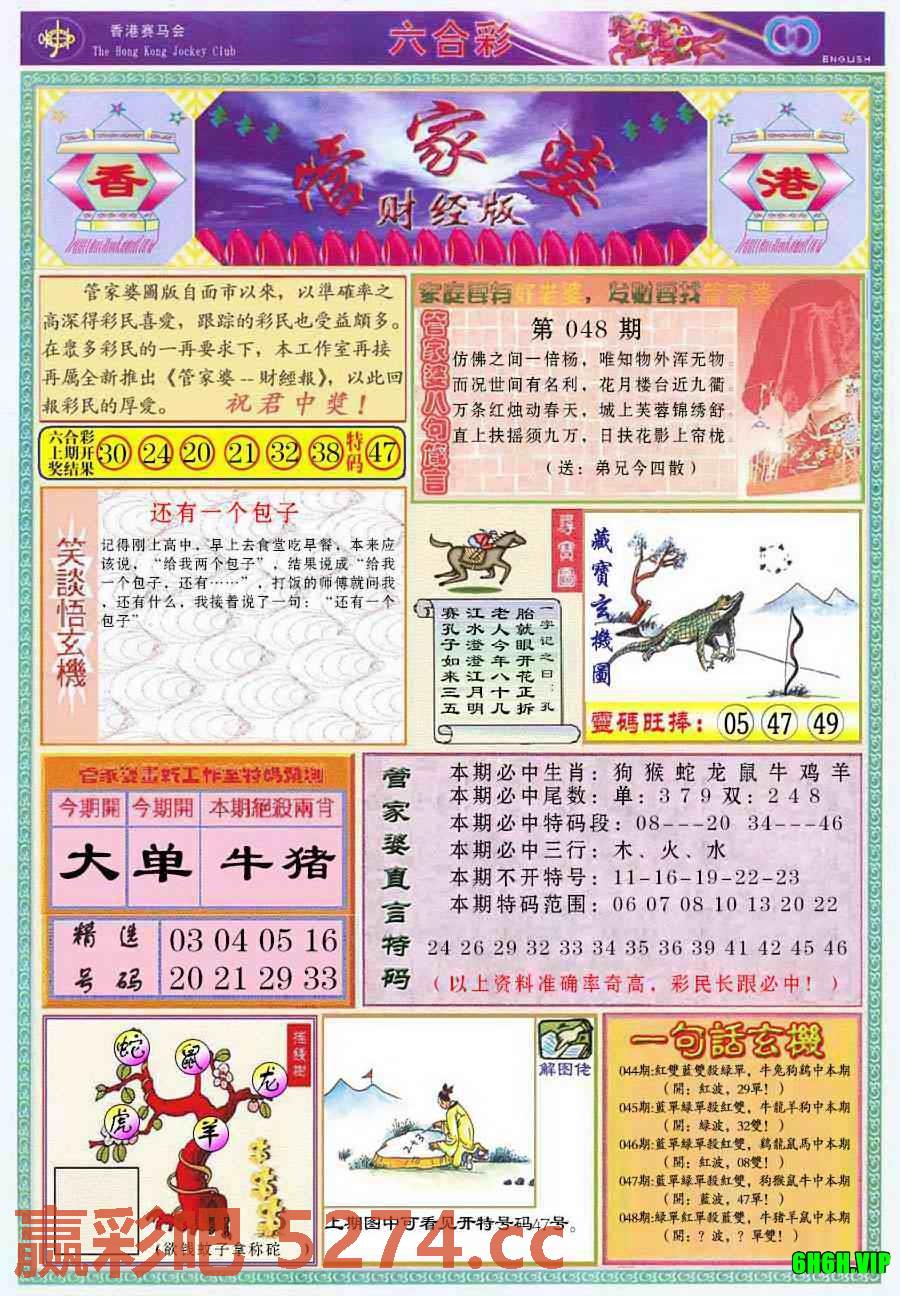 香港赛马会
The Hong Kong Jockey Club
六合彩
ENGLISH
管家婆
财经版
香
港
管家婆圖版自面市以來，以準確率之
高深得彩民喜爱，跟踪的彩民也受益頗多。
在眾多彩民的一再要求下，本工作室再接
再属全新推出《管家婆--財經報》，以此回
報彩民的厚爱。 祝君中奖！
六合彩
上期开
奖结果
30 24 20 21 32 38 特码 47
家庭要有好老婆，发财要找管家婆
管家婆八句箴言
第 048 期
仿佛之间一倍杨，唯知物外浑无物。
而况世间有名利，花月楼台近九衢。
万条红烛动春天，城上芙蓉锦绣舒。
直上扶摇须九万，日扶花影上帘栊。
（送：弟兄今四散）
笑談悟玄機
还有一个包子
记得刚上高中，早上去食堂吃早餐，本来应
该说，“给我两个包子”，结果说成“给我
一个包子，还有……”，打饭的师傅就问我
，还有什么，我接着说了一句：“还有一个
包子”
尋寶圖
一字记之曰：孔
胎就眼开花正拆
老人今年八十几
江水澄澄江月明
赛孔子如来三五
藏寶玄機圖
靈碼旺捧：05 47 49
管家婆最新工作室特碼預測
今期開 今期開 本期絕殺兩肖
大 单 牛猪
精选
号码
03 04 05 16
20 21 29 33
管家婆直言特码
本期必中生肖：狗 猴 蛇 龙 鼠 牛 鸡 羊
本期必中尾数：单：3 7 9 双：2 4 8
本期必中特码段：08---20 34---46
本期必中三行：木、火、水
本期不开特号：11-16-19-22-23
本期特码范围：06 07 08 10 13 20 22
24 26 29 32 33 34 35 36 39 41 42 45 46
（以上资料准确率奇高，彩民长跟必中！）
摇錢樹
蛇
鼠
龙
虎
羊
(欲钱蚊子拿称砣 )
解图佬
243
上期图中可看见开特号码47号。
一句話玄機
044期:紅雙藍雙殺綠單，牛兔狗鷄中本期
（開：紅波，29單！）
045期:藍單綠單殺紅雙，牛龍羊狗中本期
（開：綠波，32雙！）
046期:藍單綠單殺紅雙，鷄龍鼠馬中本期
（開：紅波，08雙！）
047期:藍單綠單殺紅雙，狗猴鼠牛中本期
（開：藍波，47單！）
048期:綠單紅單殺藍雙，牛猪羊鼠中本期
（開：？波，？單雙！）
赢彩吧 5274.cc
6H6H.VIP